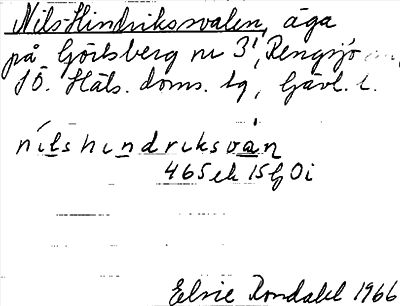 Nils-Hindriksvalen, äga
på Görtsberg nr 3¹, Rengsjö
SÖ. Häls. doms. lg, Gävl. l.
nilshindriksván
465 ek 15 G 0 i
Elsie Rondahl 1966